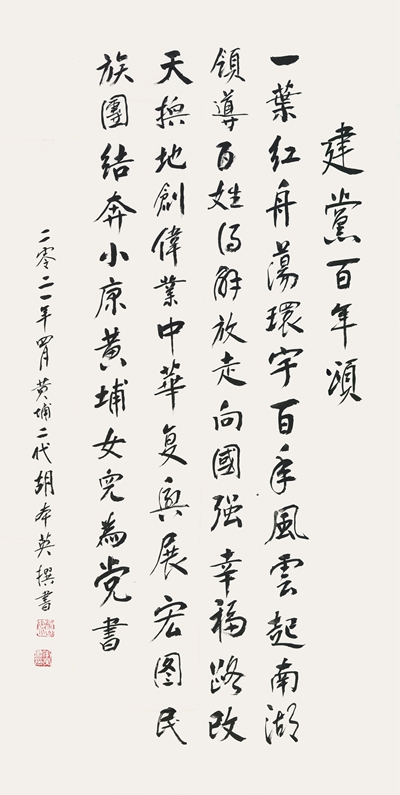 建黨百年頌
一葉紅舟蕩環宇百年風雲起南湖
領導百姓得解放走向國强幸福路改
天換地創偉業中華复興展宏图民
族團结奔小康黄埔女兒為党書
二零二一年四月黄埔二代胡本英撰書